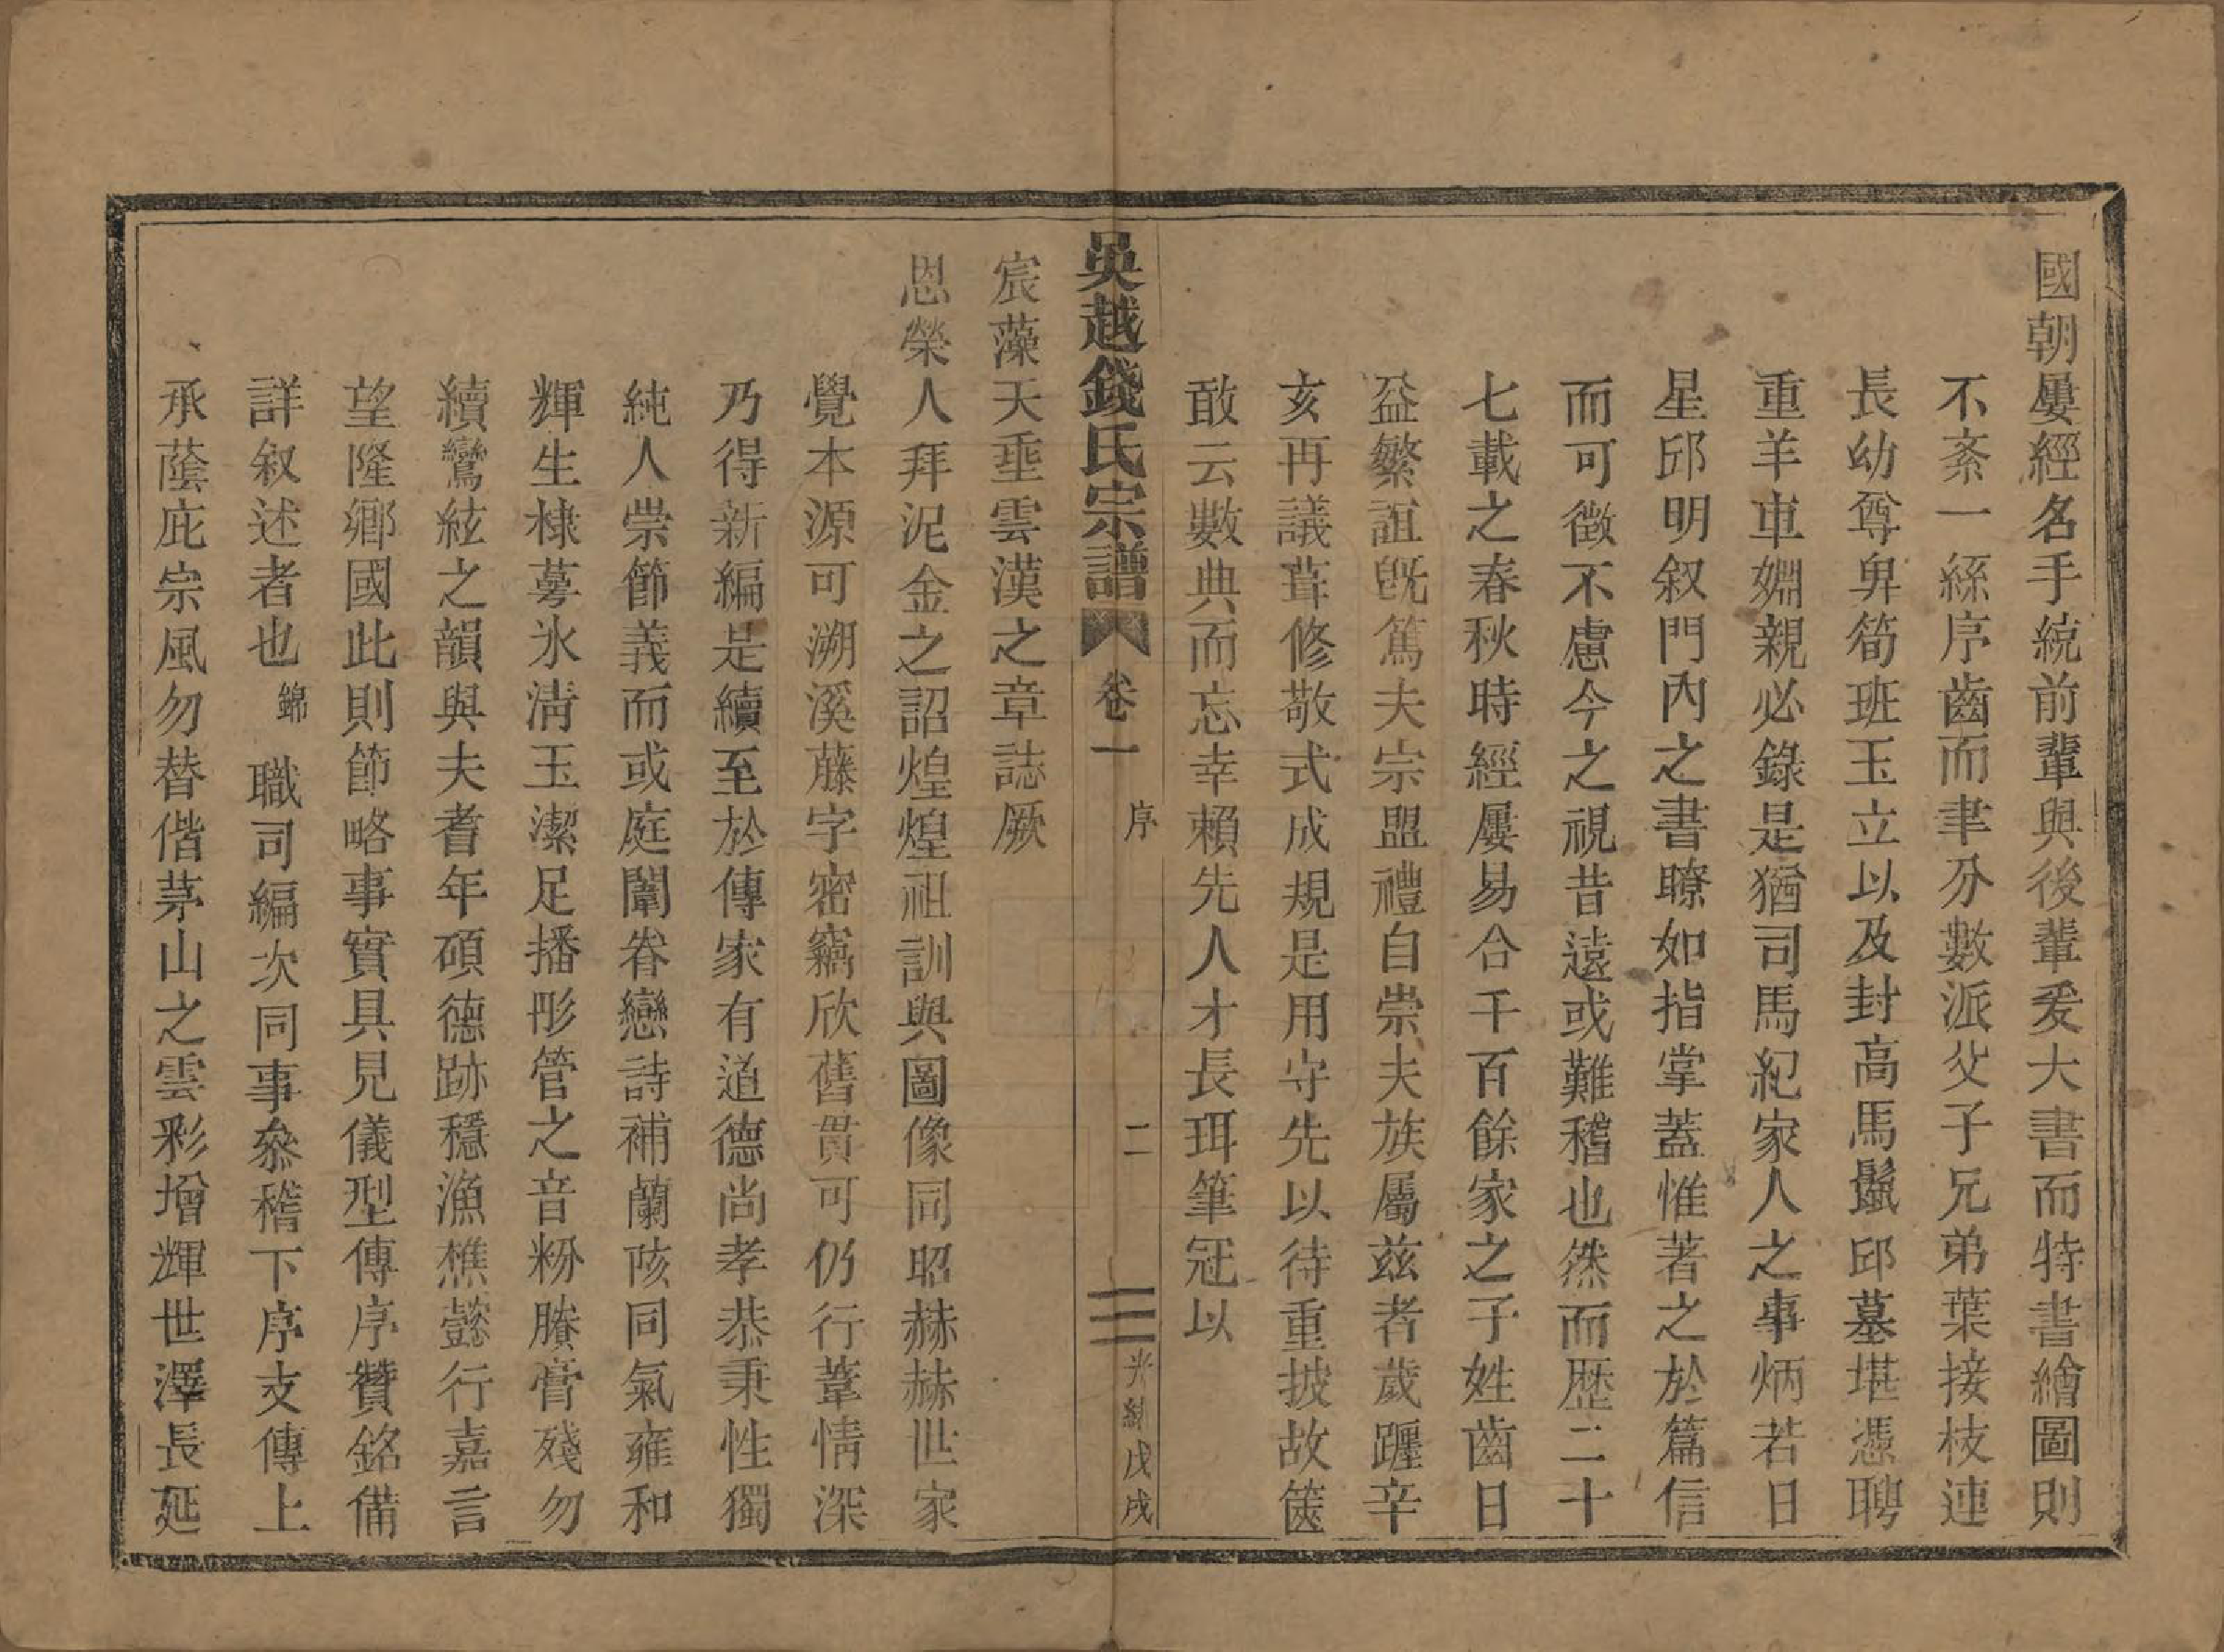 國朝屢經名手統前輩與後輩爰大書而特書繪圖則
不紊一絲序齒而聿分數派父子兄弟葉接枝連
長幼尊卑筍班玉立以及封高馬鬛邱墓堪憑聘
重羊車婣親必錄是猶司馬紀家人之事炳若日
星邱明叙門內之書瞭如指掌蓋惟著之於篇信
而可徵不慮今之視昔遠或難稽也然而歷二十
七載之春秋時經屢易合千百餘家之子姓齒日
益繁誼既篤夫宗盟禮自崇夫族屬兹者歲躔辛
亥再議葺修敬式成規是用守先以待重披故篋
敢云數典而忘幸賴先人才長珥筆冠以
吳越錢氏宗譜 卷一 序 二 光緒戊戌
宸藻天垂雲漢之章誌厥
恩榮人拜泥金之詔煌煌祖訓與圖像同昭赫赫世家
覺本源可溯溪藤字密竊欣舊貫可仍行葦情深
乃得新編是續至於傳家有道德尚孝恭秉性獨
純人崇節義而或庭闈眷戀詩補蘭陔同氣雍和
輝生棣萼氷淸玉潔足播彤管之音粉賸膏殘勿
續鸞絃之韻與夫耆年碩德跡穩漁樵懿行嘉言
望隆鄉國此則節略事實具見儀型傳序贊銘備
詳叙述者也錦 職司編次同事叅稽下序支傳上
承蔭庇宗風勿替偕茅山之雲彩增輝世澤長延